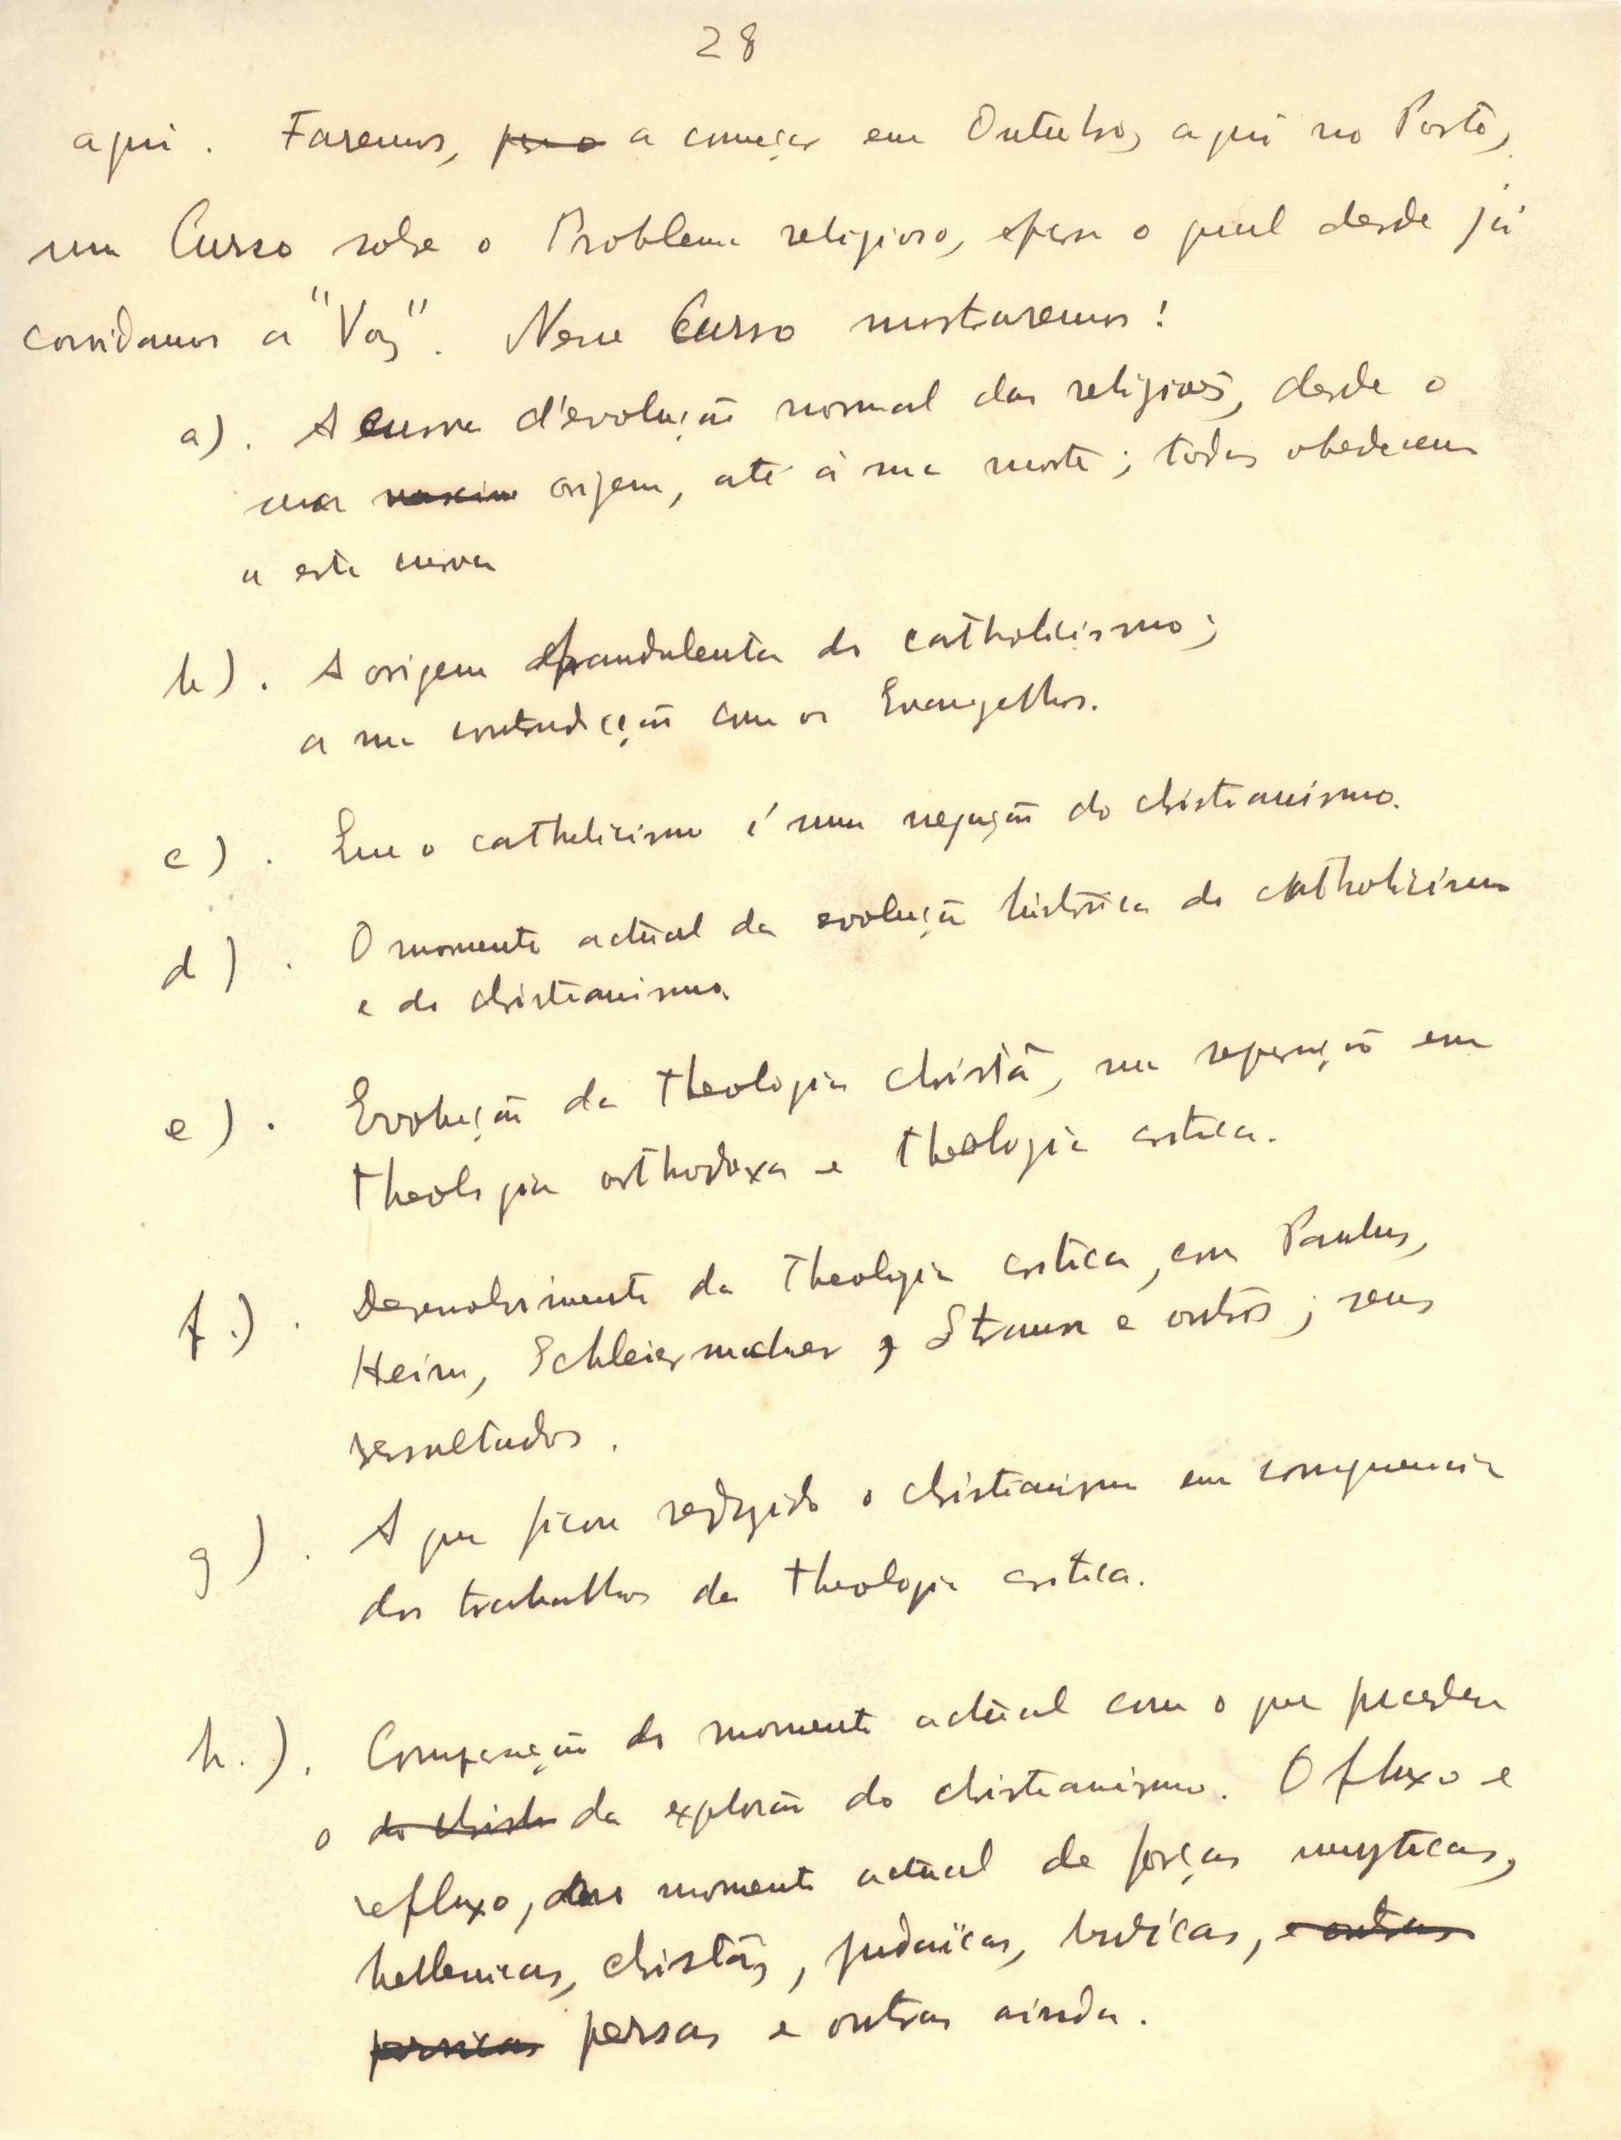 28
aqui. Faremos, a começar em Outubro, aqui no Porto,
um Curso sobre o Problema religioso, para o qual desde já
convidamos a "Voz". Nesse Curso mostraremos:
a). A curva d'evolução normal das religiões, desde o
sua origem, até à sua morte; todas obedecem
a esta curva
b). A origem fraudulenta do catholicismo;
a sua contradicção com os Evangelhos.
c). Que o catholicismo é uma negação do christianismo.
d). O momento actual da evolução histórica do catholicismo
e do christianismo.
e). Evolução da theologia christã, sua separação em
theologia orthodoxa e theologia critica.
f.). Desenvolvimento da theologia critica, com Paulus,
Heim, Schleiermacher, Strauss e outros; seus
resultados.
g). A que ficou reduzido o christianismo em consequencia
dos trabalhos da theologia critica.
h.). Comparação do momento actual com o que precedeu
o da explosão do christianismo. O fluxo e
refluxo, momento actual de forças mysticas,
hellenicas, christãs, judaïcas, persas e outras ainda.